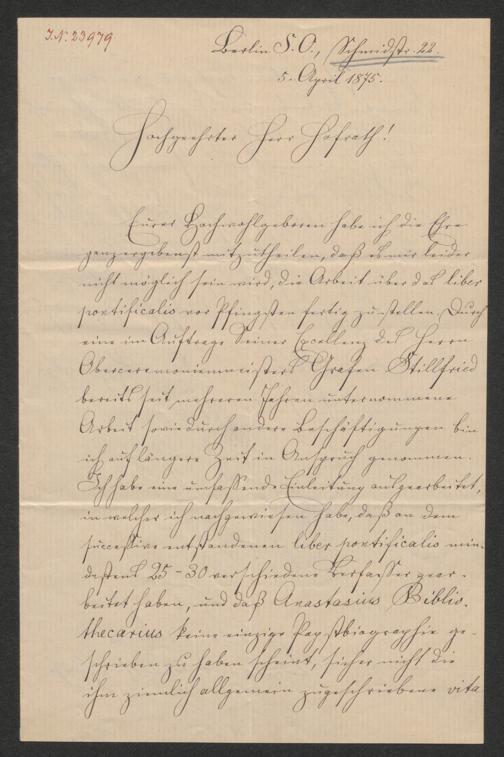 J.N. 23979
Berlin S.O., Schmidstr. 22.
5. April 1875.
Hochgeehrter Herr Hofrath!
Eurer Hochwohlgeboren habe ich die Ehre
ganz ergebenst mitzutheilen, daß es mir leider
nicht möglich sein wird, die Arbeit über das liber
pontificalis vor Pfingsten fertig zu stellen. Durch
eine im Auftrage Seiner Excellenz des Herrn
Oberceremonienmeisters Grafen Stillfried
bereits seit mehreren Jahren unternommene
Arbeit sowie durch andere Beschäftigungen bin
ich auf längere Zeit in Anspruch genommen.
Ich habe eine umfassende Einleitung ausgearbeitet,
in welcher ich nachgewiesen habe, daß an dem
successive entstandenen liber pontificalis min-
destens 25-30 verschiedene Verfasser gear-
beitet haben, und daß Anastasius Biblio-
thecarius keine einzige Papstbiographie ge-
schrieben zu haben scheint, sicher nicht die
ihm ziemlich allgemein zugeschriebene vita